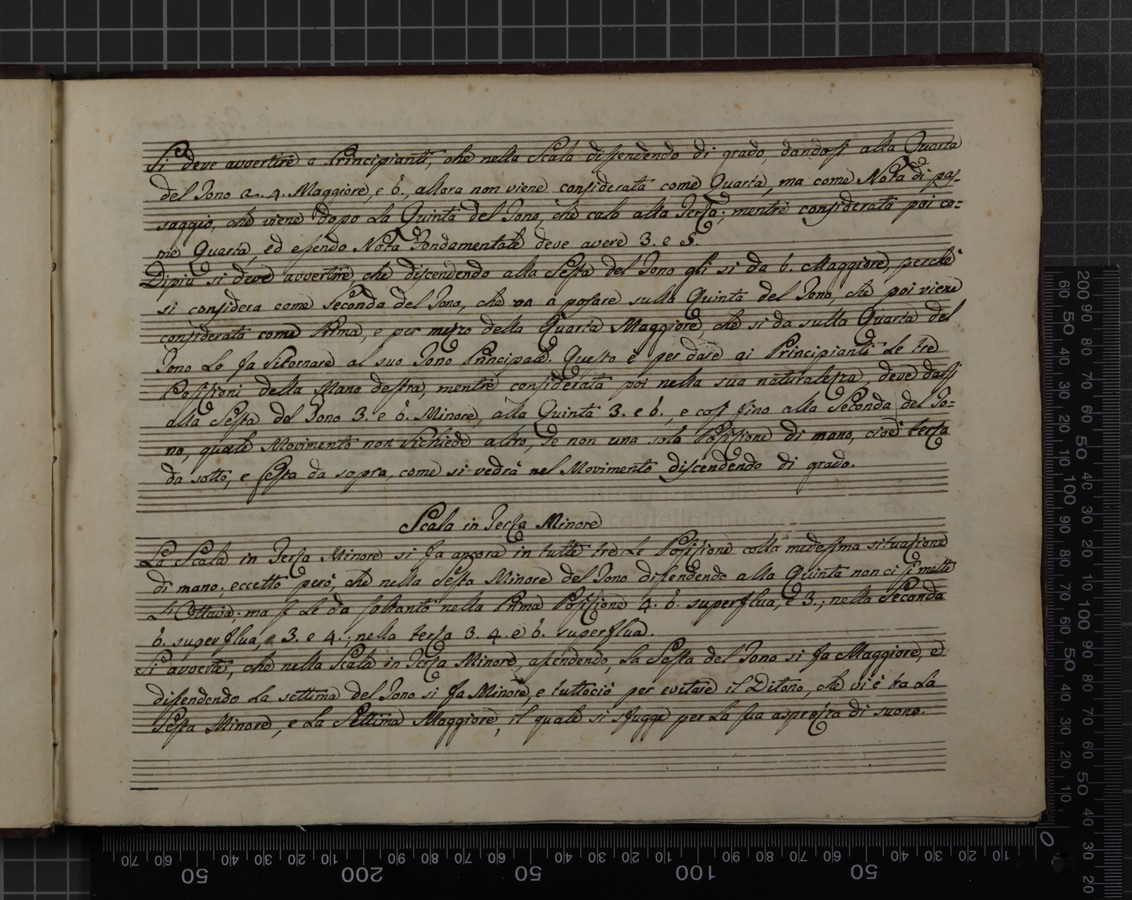 Si deve avvertire a Principianti, che nella Scala discendendo di grado, dandosi alla Quarta
del Tono a. 4. Maggiore, e 6., allora non viene considerata come Quarta, ma come Nota di pas-
saggio, che viene dopo La Quinta del Tono, che cala alla Terza; mentre considerata poi co=
me Quarta, ed essendo Nota Fondamentale deve avere 3. e 5.
Dipiù si deve avvertire, che discendendo alla Sesta del Tono gli si da 6. Maggiore, perchè
si considera come seconda del Tono, che va à posare sulla Quinta del Tono, che poi viene
considerata come Prima, e per mezzo della Quarta Maggiore, che si da sulla Quarta del
Tono Lo fa ritornare al suo Tono Principale. Questo è per dare ai Principianti Le tre
Posizioni della Mano destra, mentre considerata poi nella sua naturalezza, deve darsi
alla Sesta del Tono 3. e 6. Minore, alla Quinta 3. e 6., e così fino alla Seconda del To=
no, quale Movimento non richiede altro, se non una sola Posizione di mano, cioè terza
da sotto, e sesta da sopra, come si vedrà nel Movimento discendendo di grado.
Scala in Terza Minore
La Scala in Terza Minore si fa ancora in tutte tre Le Posizione colla medesima situazione
di mano, eccetto però, che nella Sesta Minore del Tono disendendo alla Quinta non ci si mette
L'Ottava; ma se Le da soltanto nella Prima Posizione 4. 6. superflua, e 3.; nella Seconda
6. superflua, e 3. e 4.; nella terza 3. 4. e 6. superflua.
Si avverte, che nella Scala in Terza Minore, asendendo La Sesta del Tono si fa Maggiore, e
disendendo La settima del Tono si fa Minore, e tuttociò per evitare il Ditono, che vi è tra La
Sesta Minore, e La Settima Maggiore, il quale si sfugge per La sua asprezza di suono.
200 90 80 70 60 50 40 30 20 10 100 90 80 70 60 50 40 30 20 10
60 50 40 30 20 10 50 40 30 20 10
70 60 50 40 30 20 10 200 90 80 70 60 50 40 30 20 10 100 90 80 70 60 50 40 30 20 10 0